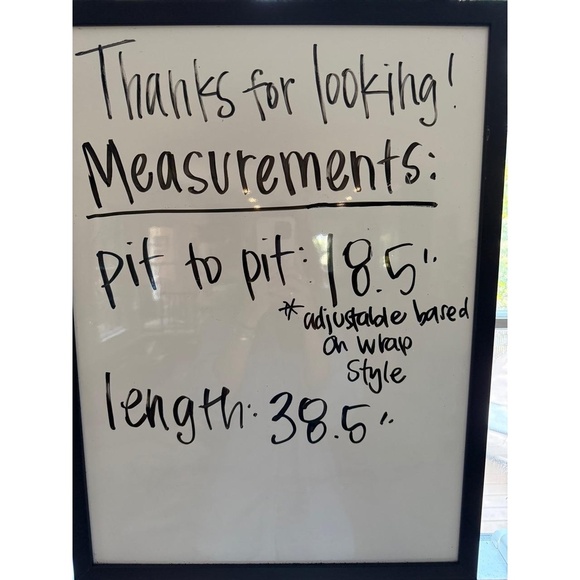 Thanks for looking!
Measurements:
pit to pit: 18.5"
* adjustable based
on wrap
style
length: 38.5"